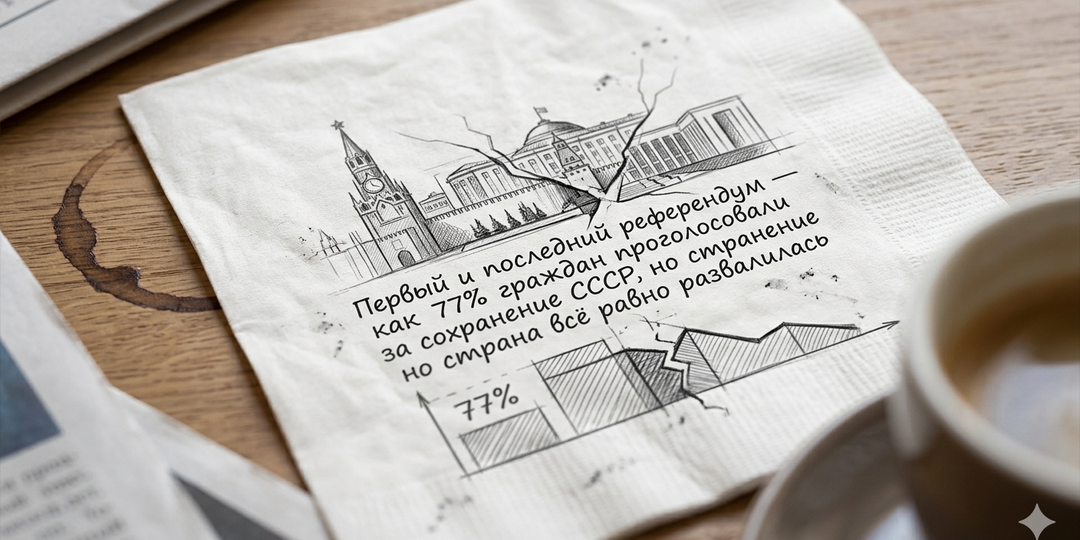 Первый и последний референдум —
как 77% граждан проголосовали
за сохранение СССР, но странение
но страна всё равно развалилась
77%